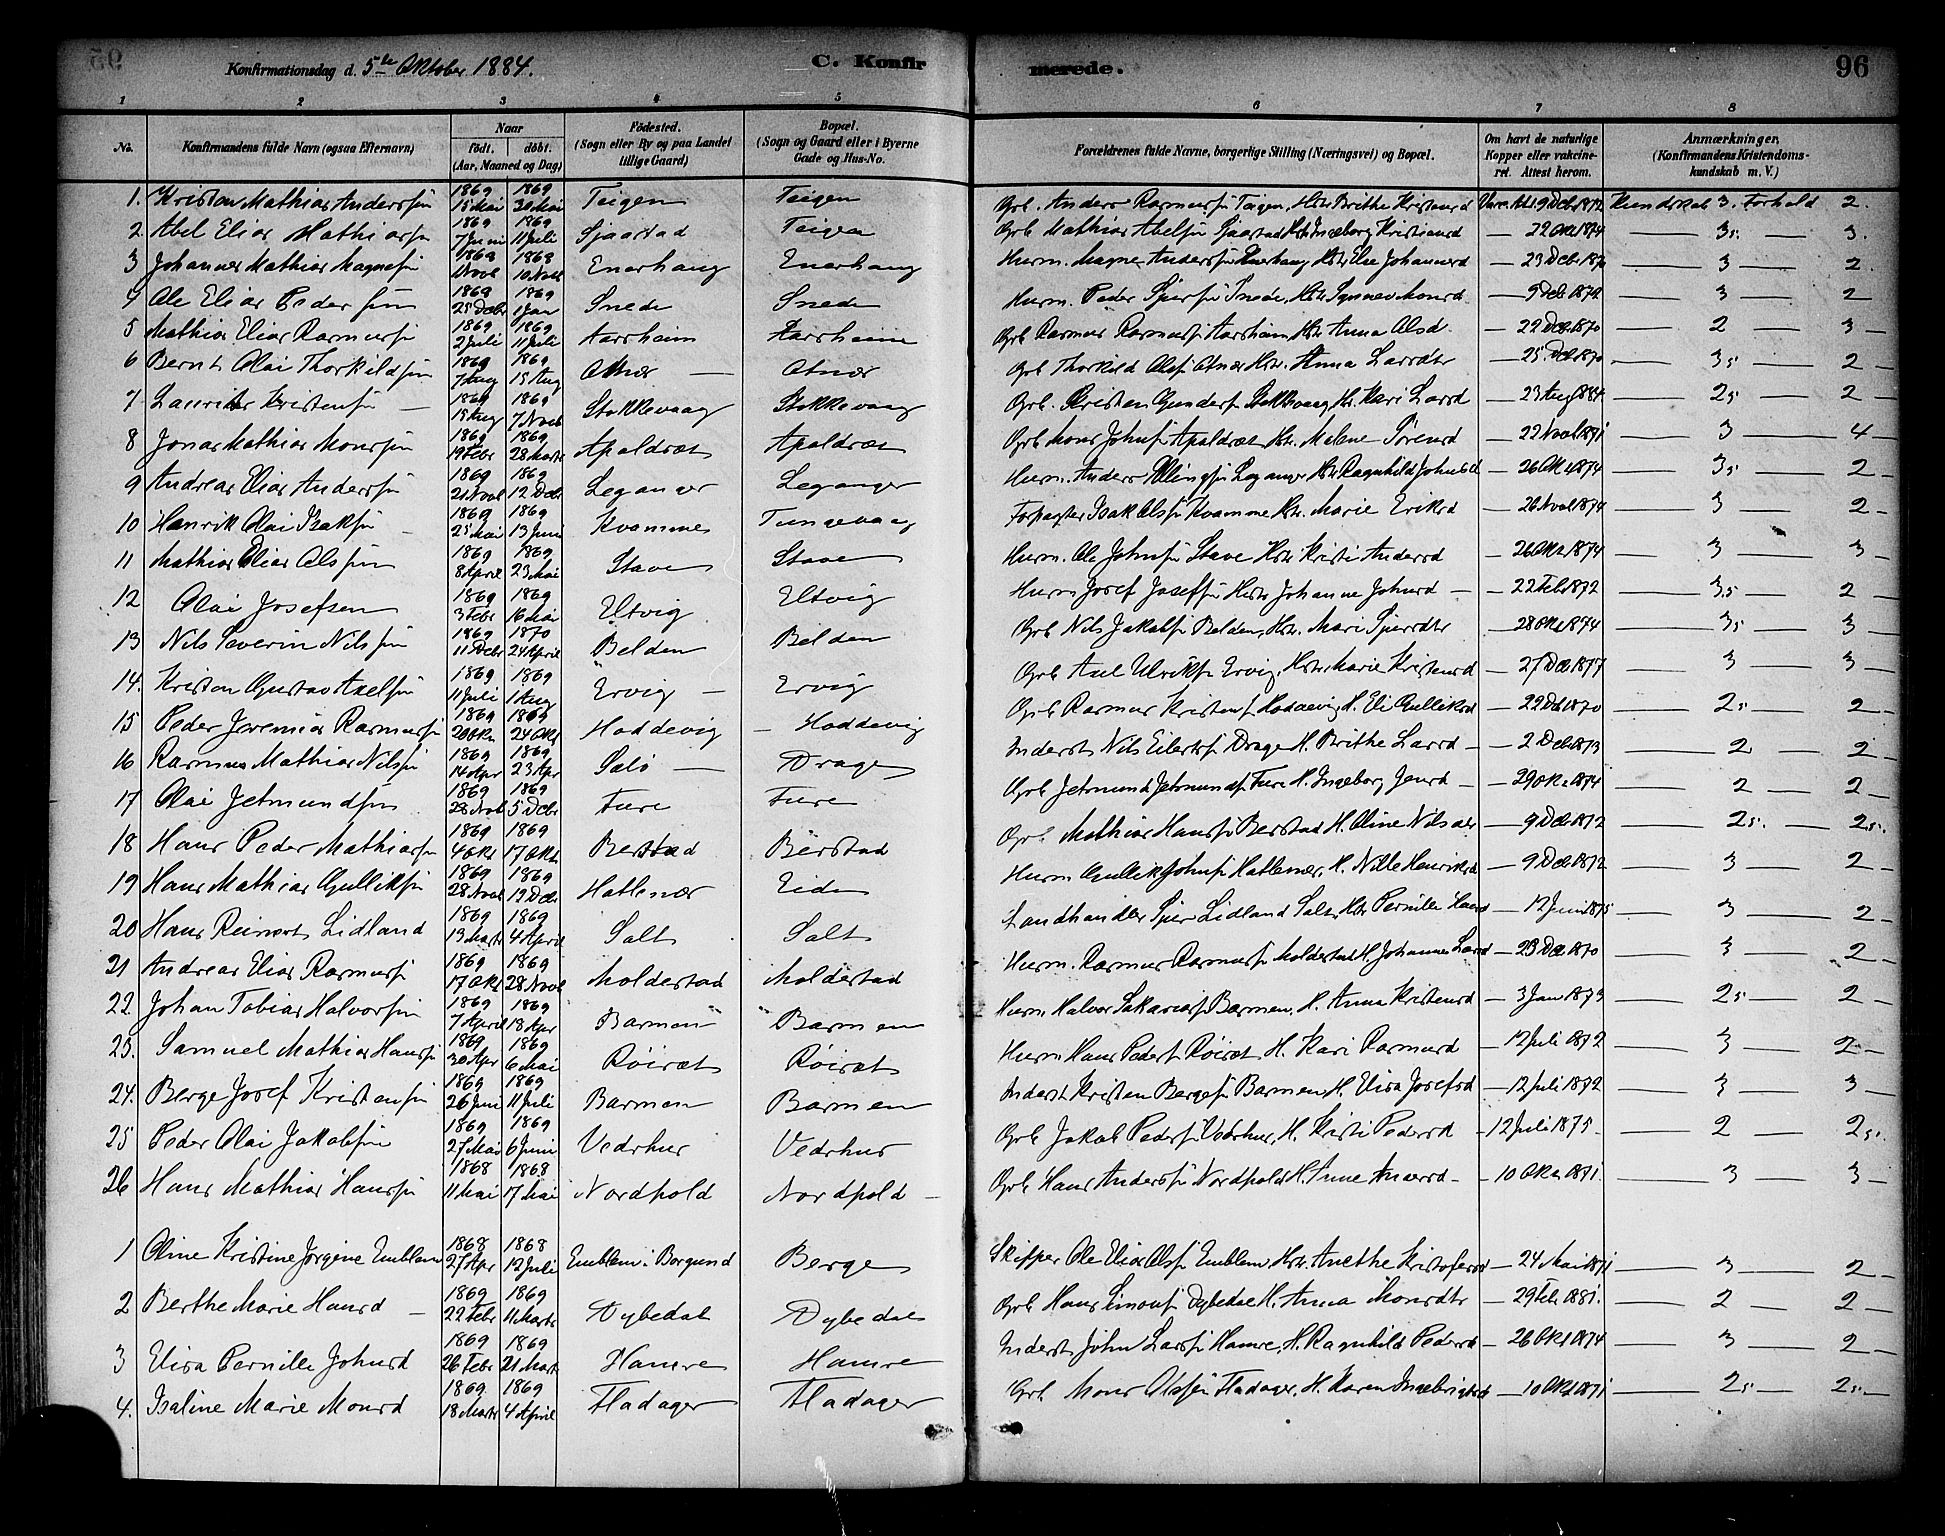 Konfirmationsdag d. 5te Oktober 1884. C. Konfirmerede. 96
1 2 3 4 5 6 7 8
No. Konfirmandens fulde Navn (ogsaa Efternavn) Naar født. døbt. (Aar, Maaned og Dag) Fødested. (Sogn eller By og paa Landet tillige Gaard) Bopæl. (Sogn og Gaard eller i Byerne Gade og Hus-No. Forældrenes fulde Navne, borgerlige Stilling (Næringsvei) og Bopæl. Om havt de naturlige Kopper eller vakcineret. Attest herom. Anmærkninger, (Konfirmandens Kristendomskundskab m. V.)
1. Kristen Mathias Anderssøn 1869 15 Mai 1869 30 Mai Teigen Teigen Grb. Anders Rasmussøn Teigen, Hst. Brithe Kristensd Vacc. Att. 9 Deb 1872 Kundskab 3. Forhold 2.
2. Abel Elias Mathiassøn 1869 7 Juni 1869 11 Juli Sjaastad Teigen Grb Mathias Abelsøn Sjaastad Hst. Ingeborg Kristiansd — 22 Okt 1874 — 35. — 3.
3 Johannes Mathias Magnesøn 1869 Novb 1869 10 Novb Enerhaug Enerhaug Husm. Magne Anderssøn Enerhaug Hst. Else Johannesd — 23 Debr 1870 — 3 — 2.
4 Ole Elias Pedersøn 1869 25 Decbr 1869 1 Jan Snede Snede Husm. Peder Sjursøn Snede, Hst. Synnev Monsd. — 9 Deb 1872 — 3 — 2
5 Mathias Elias Rasmussøn 1869 2 Juli 1869 11 Juli Aarsheim Aarsheim Grb Rasmus Rasmussøn Aarsheim Hst. Anna Olsd. — 22 Deb 1870 — 2 — 3 —
6 Bernt Olai Thorkildsøn 1869 7 Aug 1869 15 Aug Otnær — Otnær Grb Thorkild Olesøn Otnær Hst. Anna Larsdtr — 25 Deb 1870 — 35 — 2 —
7 Laurits Kristensøn — 1869 18 Aug 1869 7 Novb Stokkevaag Stokkevaag Grb. Kristen Gunders. Stokkevaag, Hst. Kari Larsd — 23 Aug 1884 — 25 — 2 —
8 Jonas Mathias Monssøn 1869 19 Febr 1869 28 Marts Apaldræt Apaldræt Grb Mons Johns. Apaldræt Hst. Malene Sørensd — 22 Novb 1871 — 3 — 4 —
9 Andreas Elias Anderssøn 1869 21 Novb 1869 12 Debr Leganger Leganger Husm. Anders Ellingsøn Leganger Hst. Ragnhild Johnsd — 26 Okt 1874 — 35 — 2 —
10 Henrik Olai Isaksøn 1869 25 Mai 1869 13 Juni Kvamme Tungevaag Forpagter Isak Olssøn Kvamme Hst. Marie Eriksd — 26 Novb 1874 — 3 — 2 —
11 Mathias Elias Olssøn 1869 8 April 1869 23 Mai Stave Stave Husm. Ole Johnsøn Stave Hst. Kristi Andersd — 26 Okt 1874 — 3 — 3 —
12 Olai Josefsen 1869 3 Febr 1869 16 Mai Eltvig Eltvig Husm Josef Josefsøn Hst. Johanne Johnsd — 22 Feb 1872 — 35 — 2 —
13 Nils Severin Nilssøn 1869 11 Debr 1870 24 April Belden Belden Grb Nils Jakobsøn Belden, Hst. Mari Sjursdtr — 28 Okt 1874 — 35 — 3 —
14. Kristen Gustav Axelsøn 1869 11 Juli 1869 1 Aug Ervig — Ervig Grb Axel Ulriksøn Ervig, Hst. Marie Kristensd — 27 Deb 1877 — 3 — 3 —
15 Peder Jeremias Rasmussøn 1869 20 Okt 1869 24 Okt Hoddevig — Hoddevig Grb Rasmus Kristens. Hoddevig H. Eli Gulliksd — 22 Deb 1870 — 25 — 2 —
16 Rasmus Mathias Nilssøn 1869 14 Apr 1869 23 Apr Salö — Drage Inderst Nils Eilerts. Drage H. Brithe Larsd — 2 Deb 1873 — 2 — 2 —
17 Olai Jetmundssøn 1869 28 Novb 1869 5 Debr Fure Fure Grb Jetmund Jetmunds. Fure H. Ingeborg Jensd — 29 Okt 1874 — 2 — 2 —
18 Hans Peder Mathiassøn 1869 4 Okt 1869 17 Okt Berstad Berstad Grb Mathias Hanssøn Berstad H. Oline Nilsdtr — 9 Deb 1872 — 25. — 25.
19 Hans Mathias Gulliksøn 1869 28 Novb 1869 19 Debr Hatlenær Eide Husm Gullik Johns. Hatlenær, H. Nille Henriksd — 9 Deb 1872 — 3 — 2 —
20 Hans Reinert Lidland 1869 13 Marts 1869 4 April Salt Salt Landhandler Sjur Lidland Salt, Hst. Pernille Hansd — 12 Juni 1875 — 3 — 2 —
21 Andreas Elias Rasmussøn 1869 17 Okt 1869 28 Novb Moldestad Moldestad Husm. Rasmus Rasmuss. Moldestad H. Johanne Larsd — 23 Deb 1870 — 3 — 2 —
22 Johan Tobias Halvorsøn 1869 7 April 1869 18 Apr Barmen Barmen Husm. Halvor Sakarias. Barmen, H. Anna Kristensd — 3 Jan 1873 — 25 — 2 —
23. Samuel Mathias Hanssøn 1869 30 Apr 1869 6 Mai Röiræt Röiræt Husm Hans Peders. Röiræt H. Kari Rasmusd — 12 Juli 1872 — 3 — 2 —
24. Berge Josef Kristensøn 1869 26 Juni 1869 11 Juli Barmen Barmen Inderst Kristen Bergesøn Barmen H. Elisa Josefsd — 12 Juli 1872 — 3 — 3 —
25 Peder Olai Jakobsøn 1869 27 Mai 1869 6 Juni Vedrhus Vedrhus Grb Jakob Pedersøn Vedrhus, H. Kristi Pedersd — 12 Juli 1875 — 2 — 25.
26 Hans Mathias Hanssøn 1868 11 Mai 1868 17 Mai Nordpold Nordpold — Grb Hans Anderssøn Nordpold H. Anne Andersd — 10 Okt 1871. — 3 — 3 —
1 Oline Kristine Jørgine Emblem 1868 27 Apr 1868 12 Juli Emblem i Borgund Berge Skipper Ole Elias Ols. Emblem Hst. Anethe Kristofersd — 24 Mai 1871 — 3 — 2 —
2 Berthe Marie Hansd — 1869 22 Febr 1869 11 Marts Dybedal Dybedal Grb Hans Simons. Dybedal H. Anna Monsdtr — 29 Feb 1881. — 2 — 2 —
3 Elisa Pernille Johnsd 1869 26 Febr 1869 21 Marts Hamre Hamre Inderst John Larssøn Hamre, H. Ragnhild Pedersd — 26 Okt 1874 — 3 — 2 —
4. Isaline Marie Monsd 1869 18 Marts 1869 4 April Fladager Fladager Grb Mons Olssøn Fladager, H. Karen Ingebrigtsd — 10 Okt 1871 — 25 — 25. —